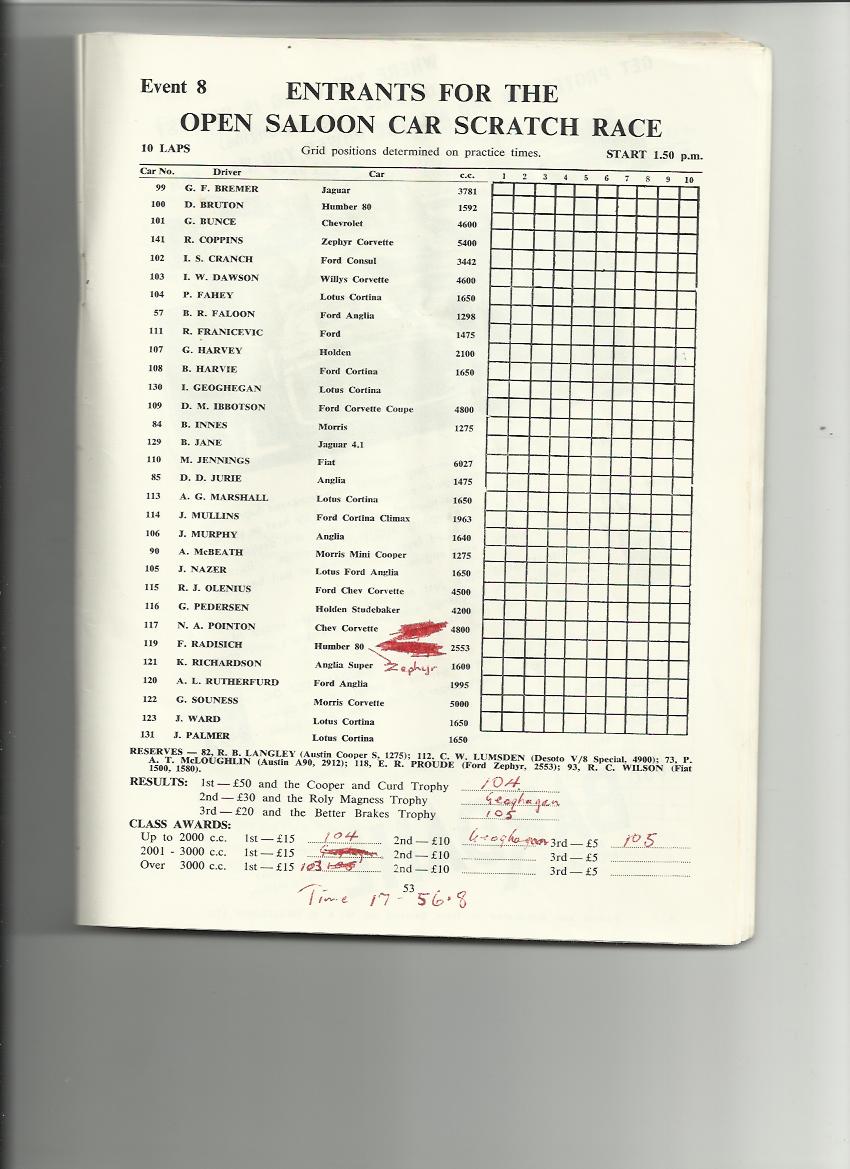 Event 8 ENTRANTS FOR THE
OPEN SALOON CAR SCRATCH RACE
10 LAPS Grid positions determined on practice times. START 1.50 p.m.
Car No. Driver Car c.c. 1 2 3 4 5 6 7 8 9 10
99 G. F. BREMER Jaguar 3781
100 D. BRUTON Humber 80 1592
101 G. BUNCE Chevrolet 4600
141 R. COPPINS Zephyr Corvette 5400
102 I. S. CRANCH Ford Consul 3442
103 I. W. DAWSON Willys Corvette 4600
104 P. FAHEY Lotus Cortina 1650
57 B. R. FALOON Ford Anglia 1298
111 R. FRANICEVIC Ford 1475
107 G. HARVEY Holden 2100
108 B. HARVIE Ford Cortina 1650
130 I. GEOGHEGAN Lotus Cortina
109 D. M. IBBOTSON Ford Corvette Coupe 4800
84 B. INNES Morris 1275
129 B. JANE Jaguar 4.1
110 M. JENNINGS Fiat 6027
85 D. D. JURIE Anglia 1475
113 A. G. MARSHALL Lotus Cortina 1650
114 J. MULLINS Ford Cortina Climax 1963
106 J. MURPHY Anglia 1640
90 A. McBEATH Morris Mini Cooper 1275
105 J. NAZER Lotus Ford Anglia 1650
115 R. J. OLENIUS Ford Chev Corvette 4500
116 G. PEDERSEN Holden Studebaker 4200
117 N. A. POINTON Chev Corvette 4800
119 F. RADISICH Humber 80 2553
121 K. RICHARDSON Anglia Super Zephyr 1600
120 A. L. RUTHERFURD Ford Anglia 1995
122 G. SOUNESS Morris Corvette 5000
123 J. WARD Lotus Cortina 1650
131 J. PALMER Lotus Cortina 1650
RESERVES — 82, R. B. LANGLEY (Austin Cooper S, 1275); 112, C. W. LUMSDEN (Desoto V/8 Special, 4900); 73, P.
A. T. McLOUGHLIN (Austin A90, 2912); 118, E. R. PROUDE (Ford Zephyr, 2553); 93, R. C. WILSON (Fiat
1500, 1580).
RESULTS: 1st — £50 and the Cooper and Curd Trophy 104
2nd — £30 and the Roly Magness Trophy Geoghagan
3rd — £20 and the Better Brakes Trophy 105
CLASS AWARDS:
Up to 2000 c.c. 1st — £15 104 2nd — £10 Geoghagan 3rd — £5 105
2001 - 3000 c.c. 1st — £15 2nd — £10 3rd — £5
Over 3000 c.c. 1st — £15 103 2nd — £10 3rd — £5
53
Time 17 - 56.8